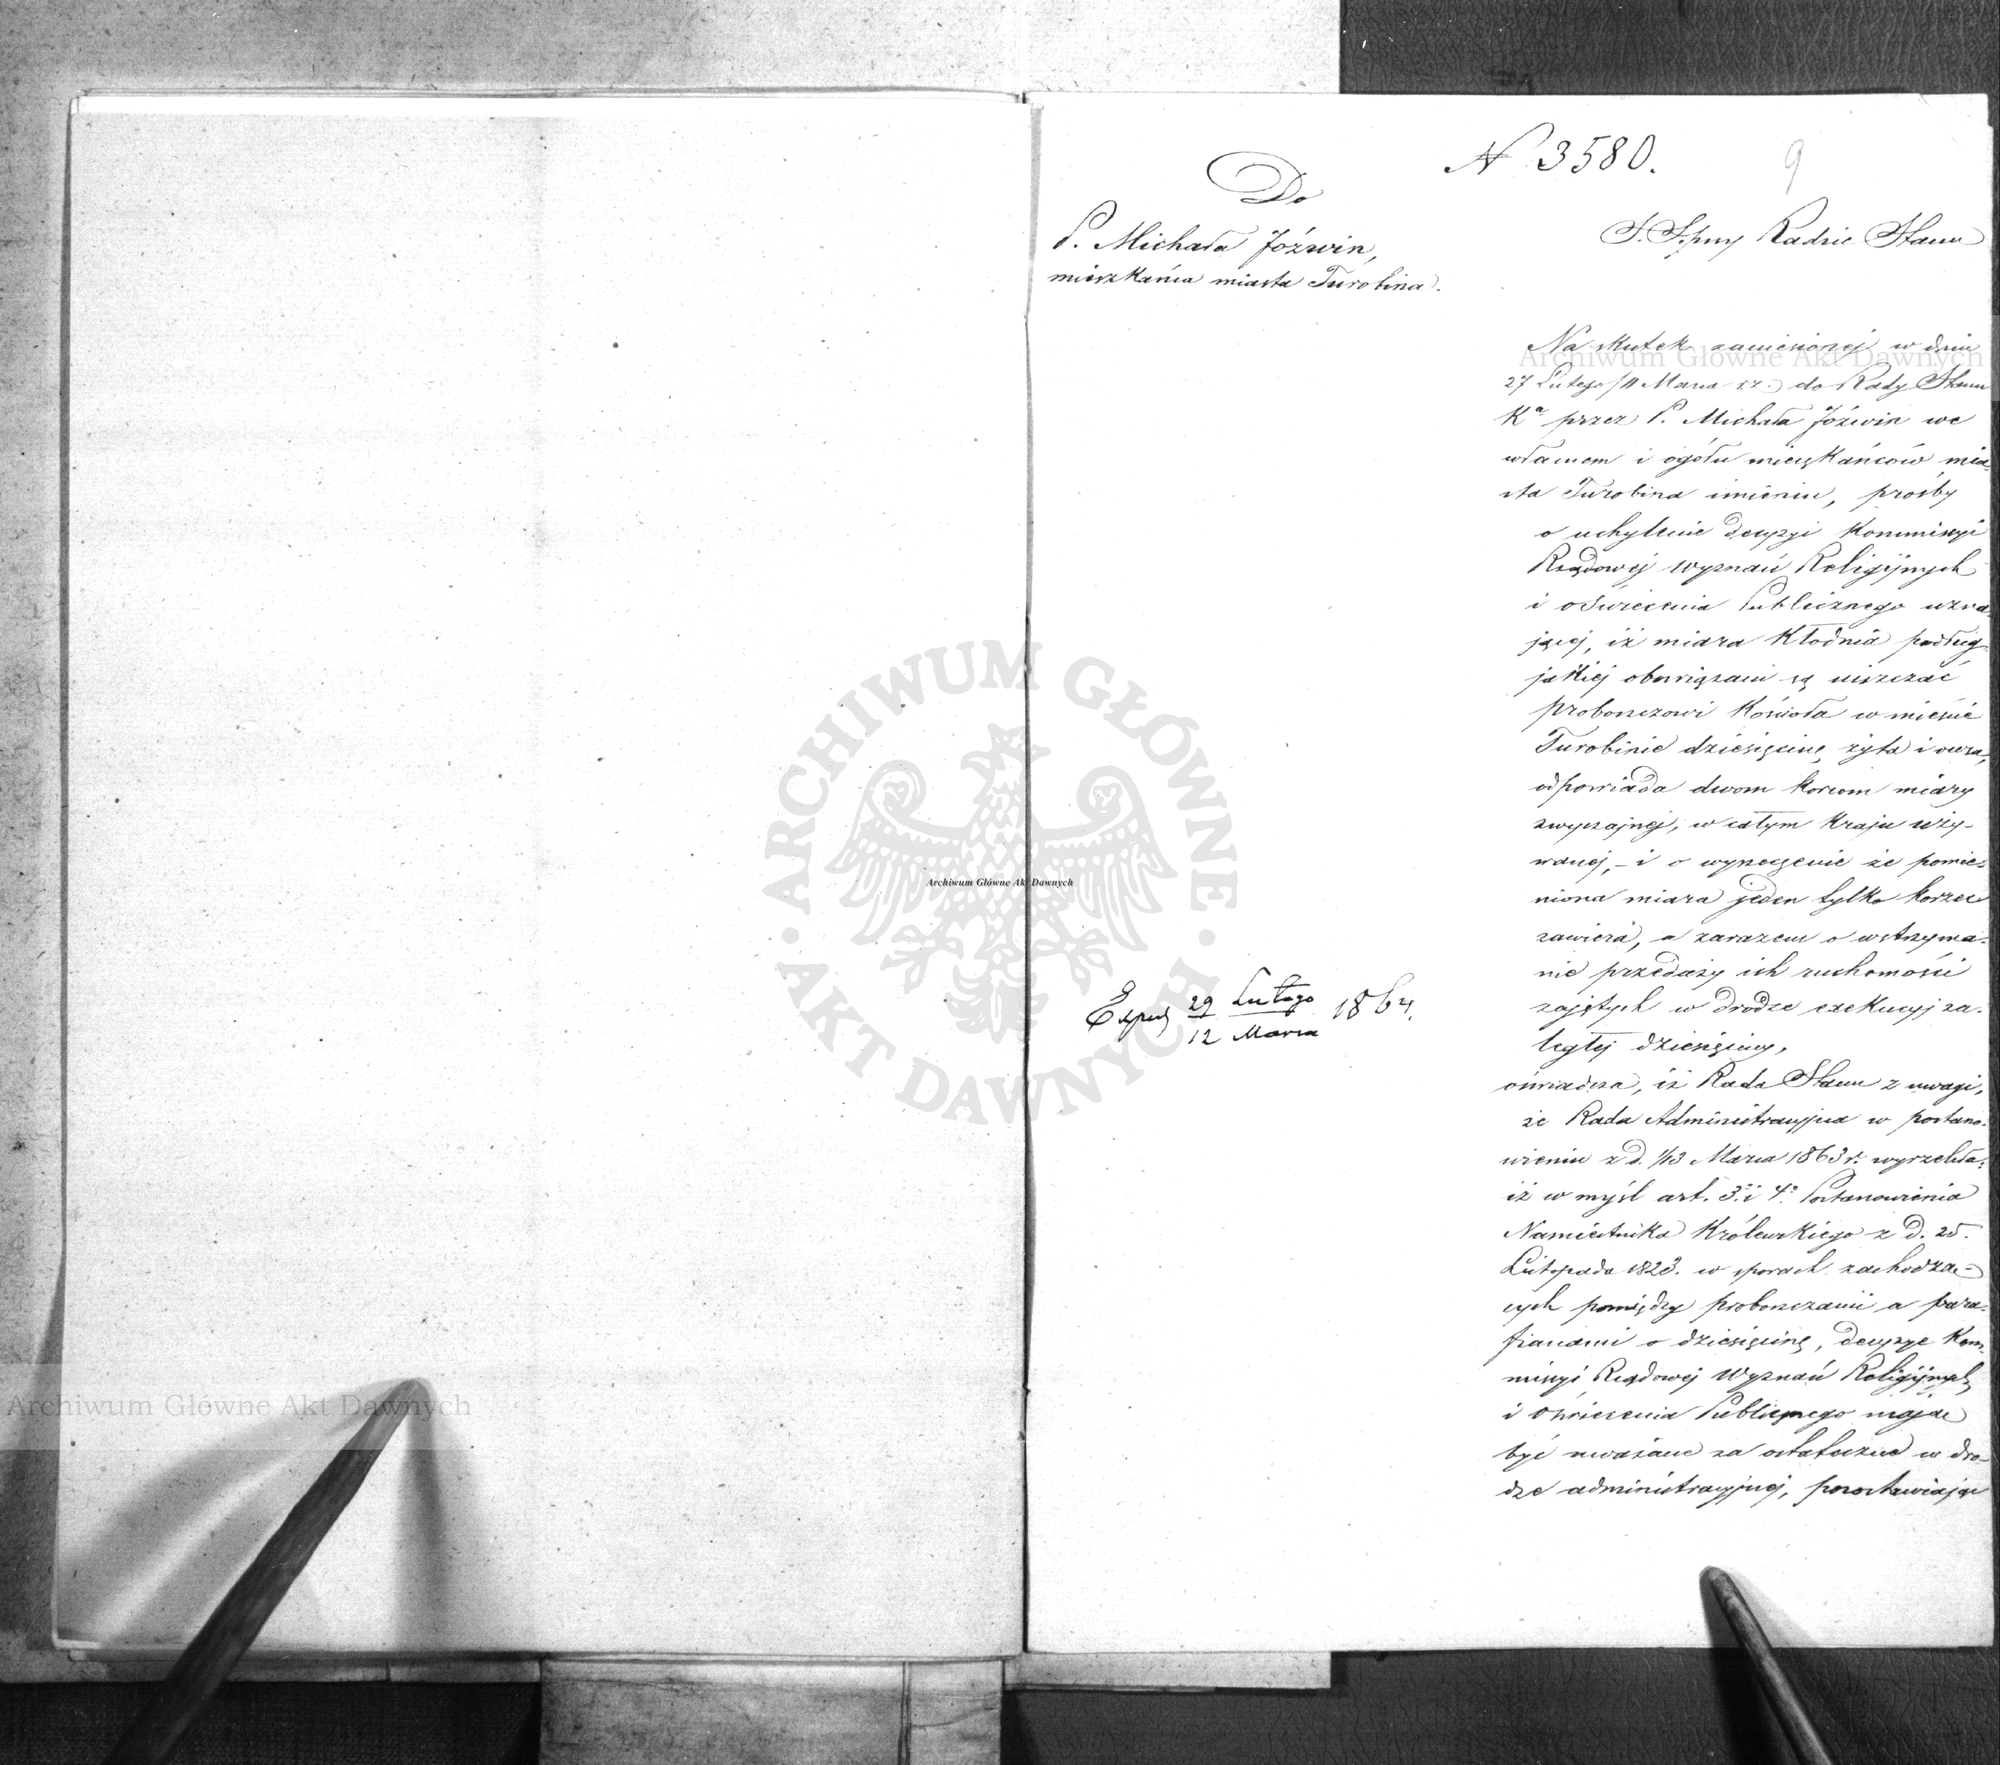 N 3580.
9
Do
P. Michała Jóźwin,
mieszkańca miasta Turobina.
Radzie Stanu
Na skutek zaniesionej w dniu
27 Lutego /11 Marca r.z.) do Rady Stanu
Kª przez P. Michała Jóźwin we
własnem i ogółu mieszkańców mia-
sta Turobina imieniu, prośby
o uchylenie decyzyi Kommissyi
Rządowej Wyznań Religijnych
i Oświecenia Publicznego uzna-
jącej, iż miara Kłodnia podług
jakiej obowiązani są uiszczać
proboszczowi Kościoła w mieście
Turobinie dziesięcinę żyta i owsa,
odpowiada dwom korcom miary
zwyczajnej, w całym Kraju uży-
wanej, – i o wyrzeczenie że pomie-
niona miara jeden tylko korzec
zawiera, a zarazem o wstrzyma-
nie przedaży ich ruchomości
zajętych w drodze exekucyj za-
ległej dziesięciny,
oświadcza, iż Rada Stanu z uwagi,
że Rada Administracyjna w postano-
wieniu z d. 1/13 Marca 1863 r. wyrzekła:
iż w myśl art. 3º i 4º Postanowienia
Namiestnika Królewskiego z d. 25.
Listopada 1823. w sporach zachodzą-
cych pomiędzy proboszczami a para-
fianami o dziesięcinę, decyzye Kom-
missyi Rządowej Wyznań Religijnych
i Oświecenia Publicznego mają
być uważane za ostateczne w dro-
dze administracyjnej, pozostawiając
29 Lutego
12 Marca
1864.
Archiwum Główne Akt Dawnych
Archiwum Główne Akt Dawnych
Archiwum Główne Akt Dawnych
ARCHIWUM GŁÓWNE
AKT DAWNYCH